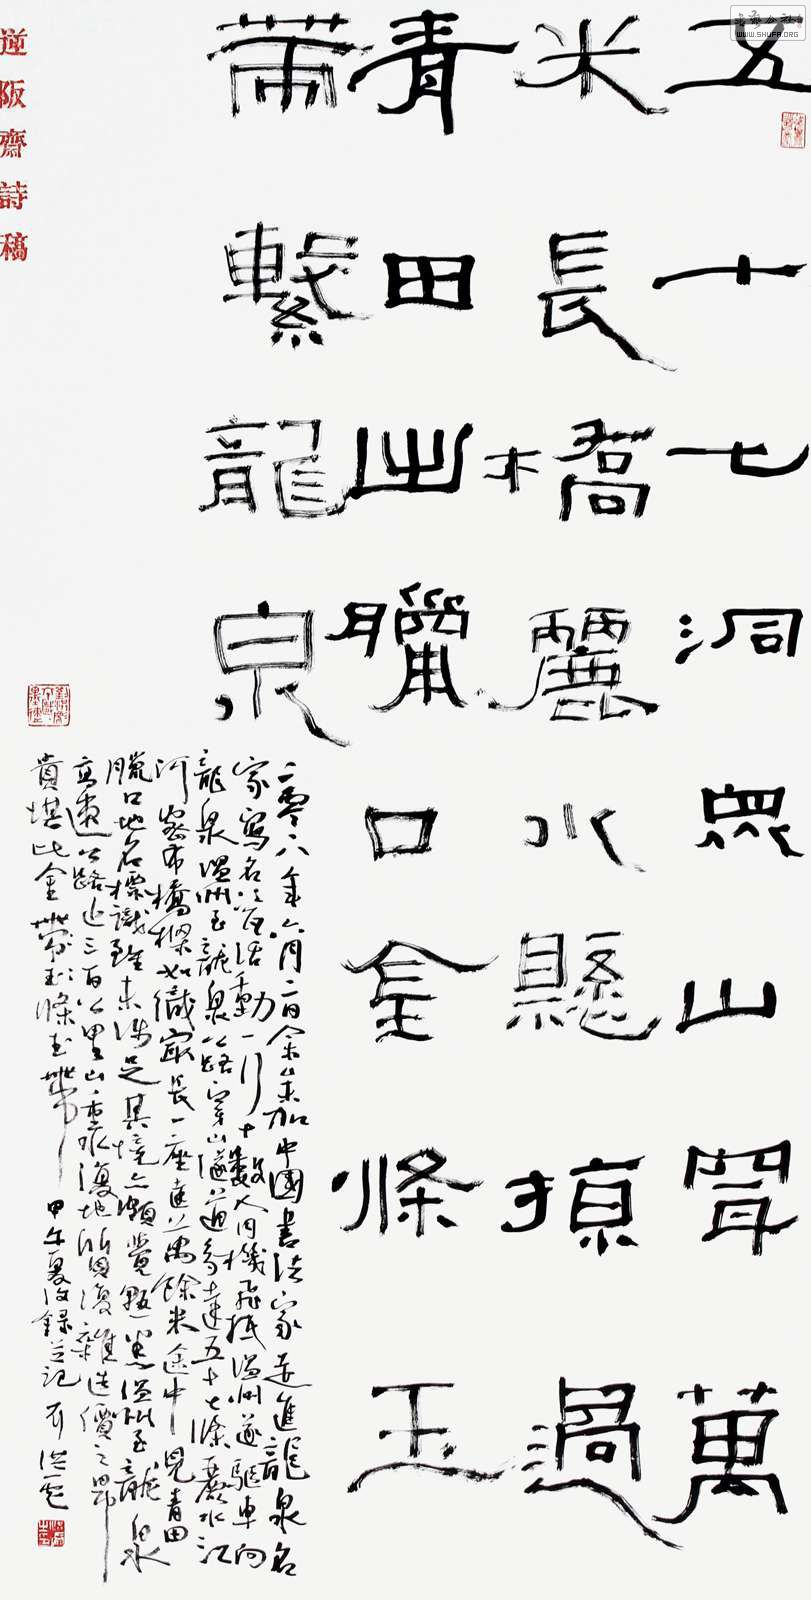 五十七洞眾山聞萬
米長橋麗水懸掠過
青田出臘口金條玉
帶繫龍泉
二零八年六月二日余參加中國書法家走進龍泉名
家寫名瓷活動一行十數人同機飛抵溫州遂驅車向
龍泉溫州至龍泉公路穿山隧道多達五十七條麗水江
河密布橋樑如織最長一座達萬餘米途中見青田
臘口地名標識雖未涉足其境亦頗覺溫州至龍泉
高速公路近三百公里山重水復地質復雜造價之昂
貴堪比金帶玉條玉帶 甲午夏錄並記
逆阪齋詩稿
WWW.SHUFA.ORG